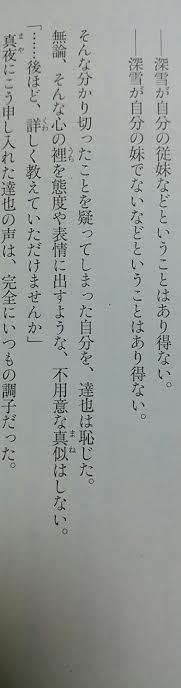 ――深雪が自分の従妹などということはあり得ない。
――深雪が自分の妹でないなどということはあり得ない。
そんな分かり切ったことを疑ってしまった自分を、達也は恥じた。
無論、そんな心の裡を態度や表情に出すような、不用意な真似はしない。
「……後ほど、詳しく教えていただけませんか」
真夜にこう申し入れた達也の声は、完全にいつもの調子だった。